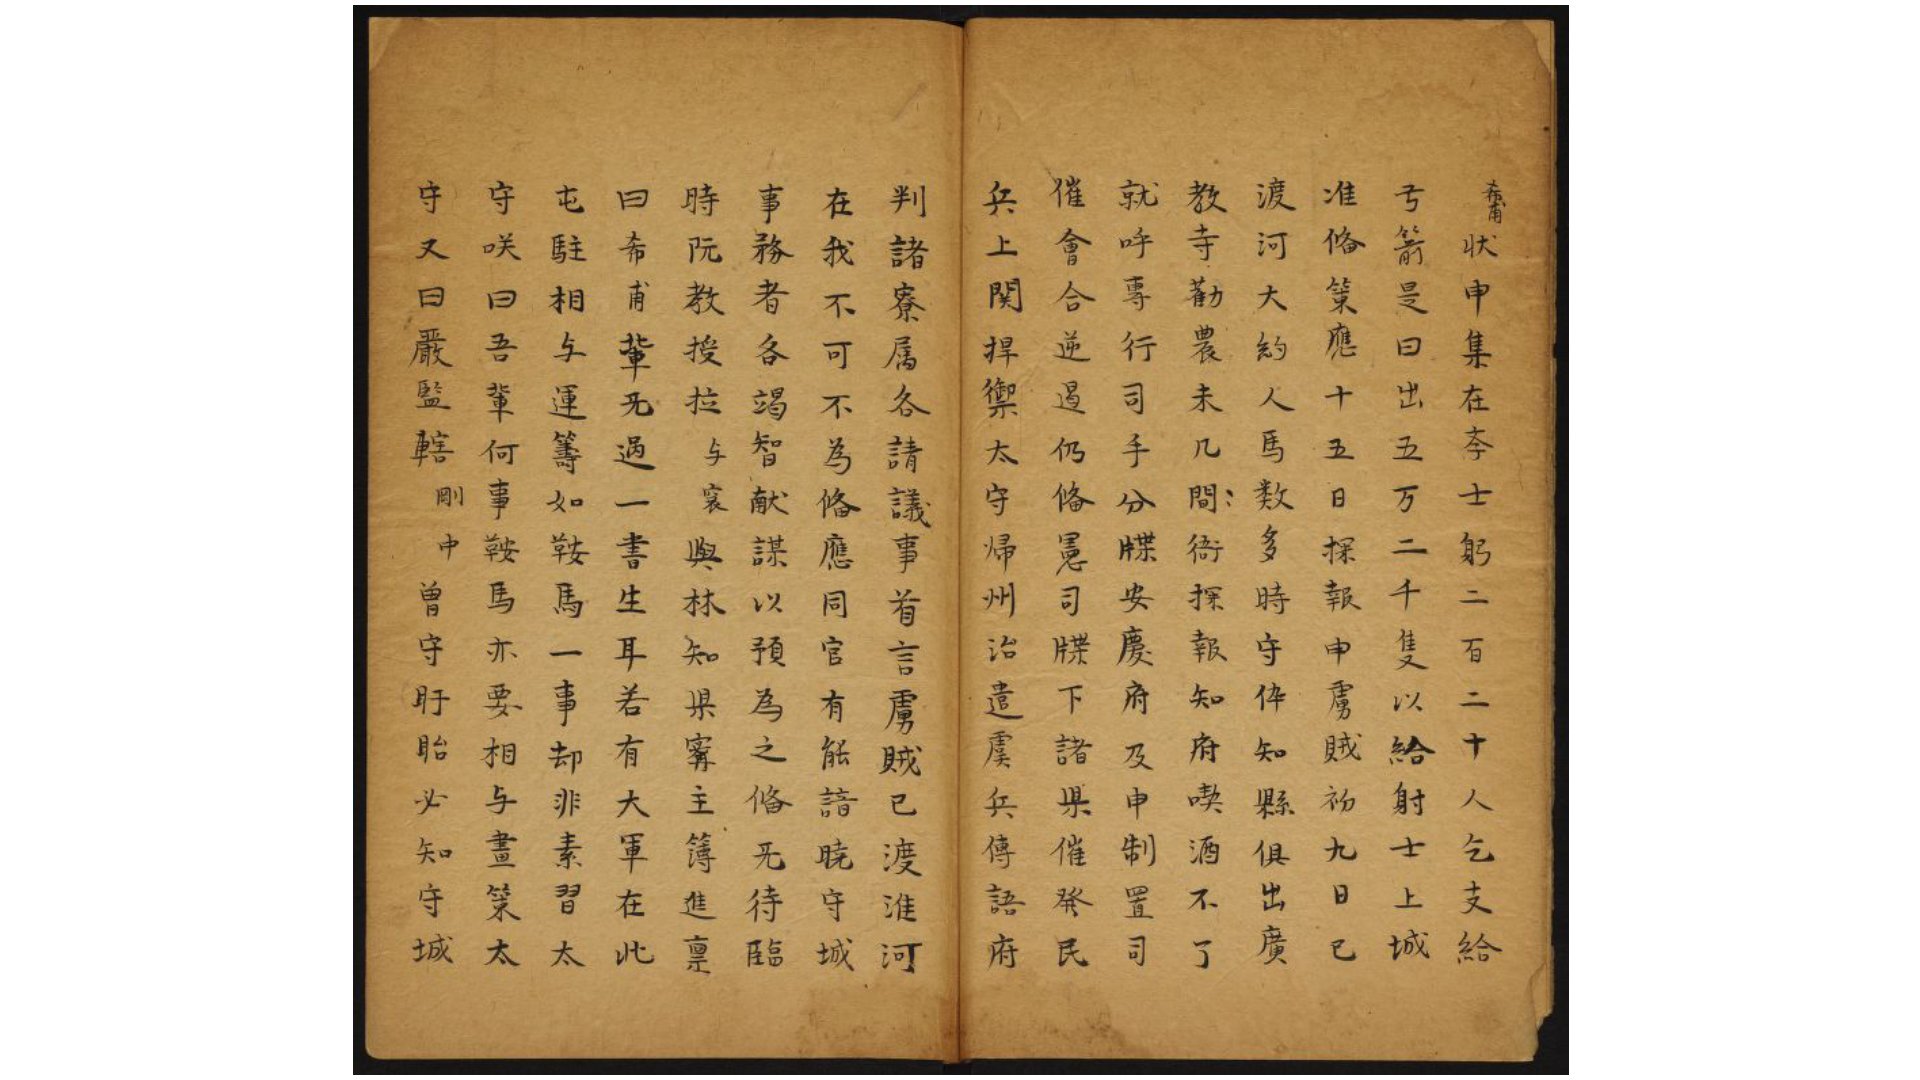 希甫状申集在李士躬二百二十人乞支給
弓箭是日出五万二千隻以給射士上城
准俻策應十五日探報申虜賊初九日已
渡河大約人馬数多時守倅知縣俱出廣
教寺勸農未几間衙探報知府喫酒不了
就呼專行司手分牒安慶府及申制置司
催會合逆遏仍俻憲司牒下諸県催發民
兵上関捍禦太守帰州治遣虞兵傳語府
判諸寮属各請議事首言虜賊已渡淮河
在我不可不為俻應同官有能諳曉守城
事務者各竭智献謀以預為之俻旡待臨
時阮教授拉与寅輿林知県寗主簿進稟
曰希甫軰旡過一書生耳若有大軍在此
屯駐相与運籌如鞍馬一事却非素習太
守咲曰吾軰何事鞍馬亦要相与畫策太
守又曰嚴監轄剛中曽守盱眙必知守城